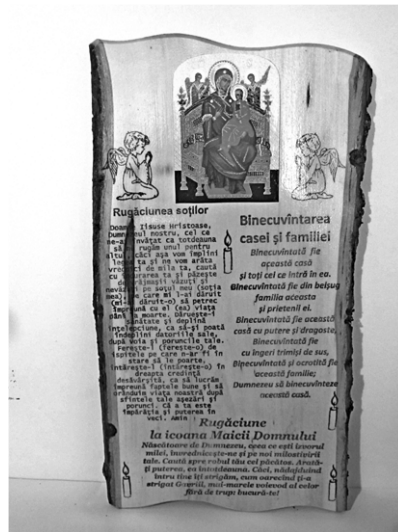 Rugăciunea soților
Doamne Iisuse Hristoase,
Dumnezeul nostru, cel ce
ne-ai învățat ca totdeauna
să ne rugăm unul pentru
altul, căci așa vom împlini
legea ta și ne vom arăta
vrednici de mila ta, caută
cu îndurarea ta și păzește
de vrăjmașii văzuți și
nevăzuți pe soțul meu (soția
mea), pe care mi l-ai dăruit
(mi-ai dăruit-o) să petrec
împreună cu el (ea) viața
până la moarte. Dăruiește-i
sănătate și deplină
înțelepciune, ca să-și poată
îndeplini datoriile sale,
după voia și poruncile tale.
Ferește-l (ferește-o) de
ispitele pe care n-ar fi în
stare să le poarte,
întărește-l (întărește-o) în
dreapta credință
desăvârșită, ca să lucrăm
împreună faptele bune și să
orânduim viața noastră după
sfintele tale așezări și
porunci. Că a ta este
împărăția și puterea în
veci. Amin
Binecuvîntarea
casei și familiei
Binecuvîntată fie
această casă
și toți cei ce intră în ea.
Binecuvîntată fie din belșug
familia aceasta
și prietenii ei.
Binecuvîntată fie această
casă cu putere și dragoste,
Binecuvîntată fie
cu îngeri trimiși de sus,
Binecuvîntată și ocrotită fie
această familie;
Dumnezeu să binecuvînteze
această casă.
Rugăciune
la icoana Maicii Domnului
Născătoare de Dumnezeu, ceea ce ești izvorul
milei, învrednicește-ne și pe noi milostivirii
tale. Caută spre robul tău cel păcătos. Arată-
ți puterea, ca întotdeauna. Căci, nădăjduind
întru tine îți strigăm, cum oarecînd ți-a
strigat Gavriil, mai-marele voievod al celor
fără de trup: bucură-te!